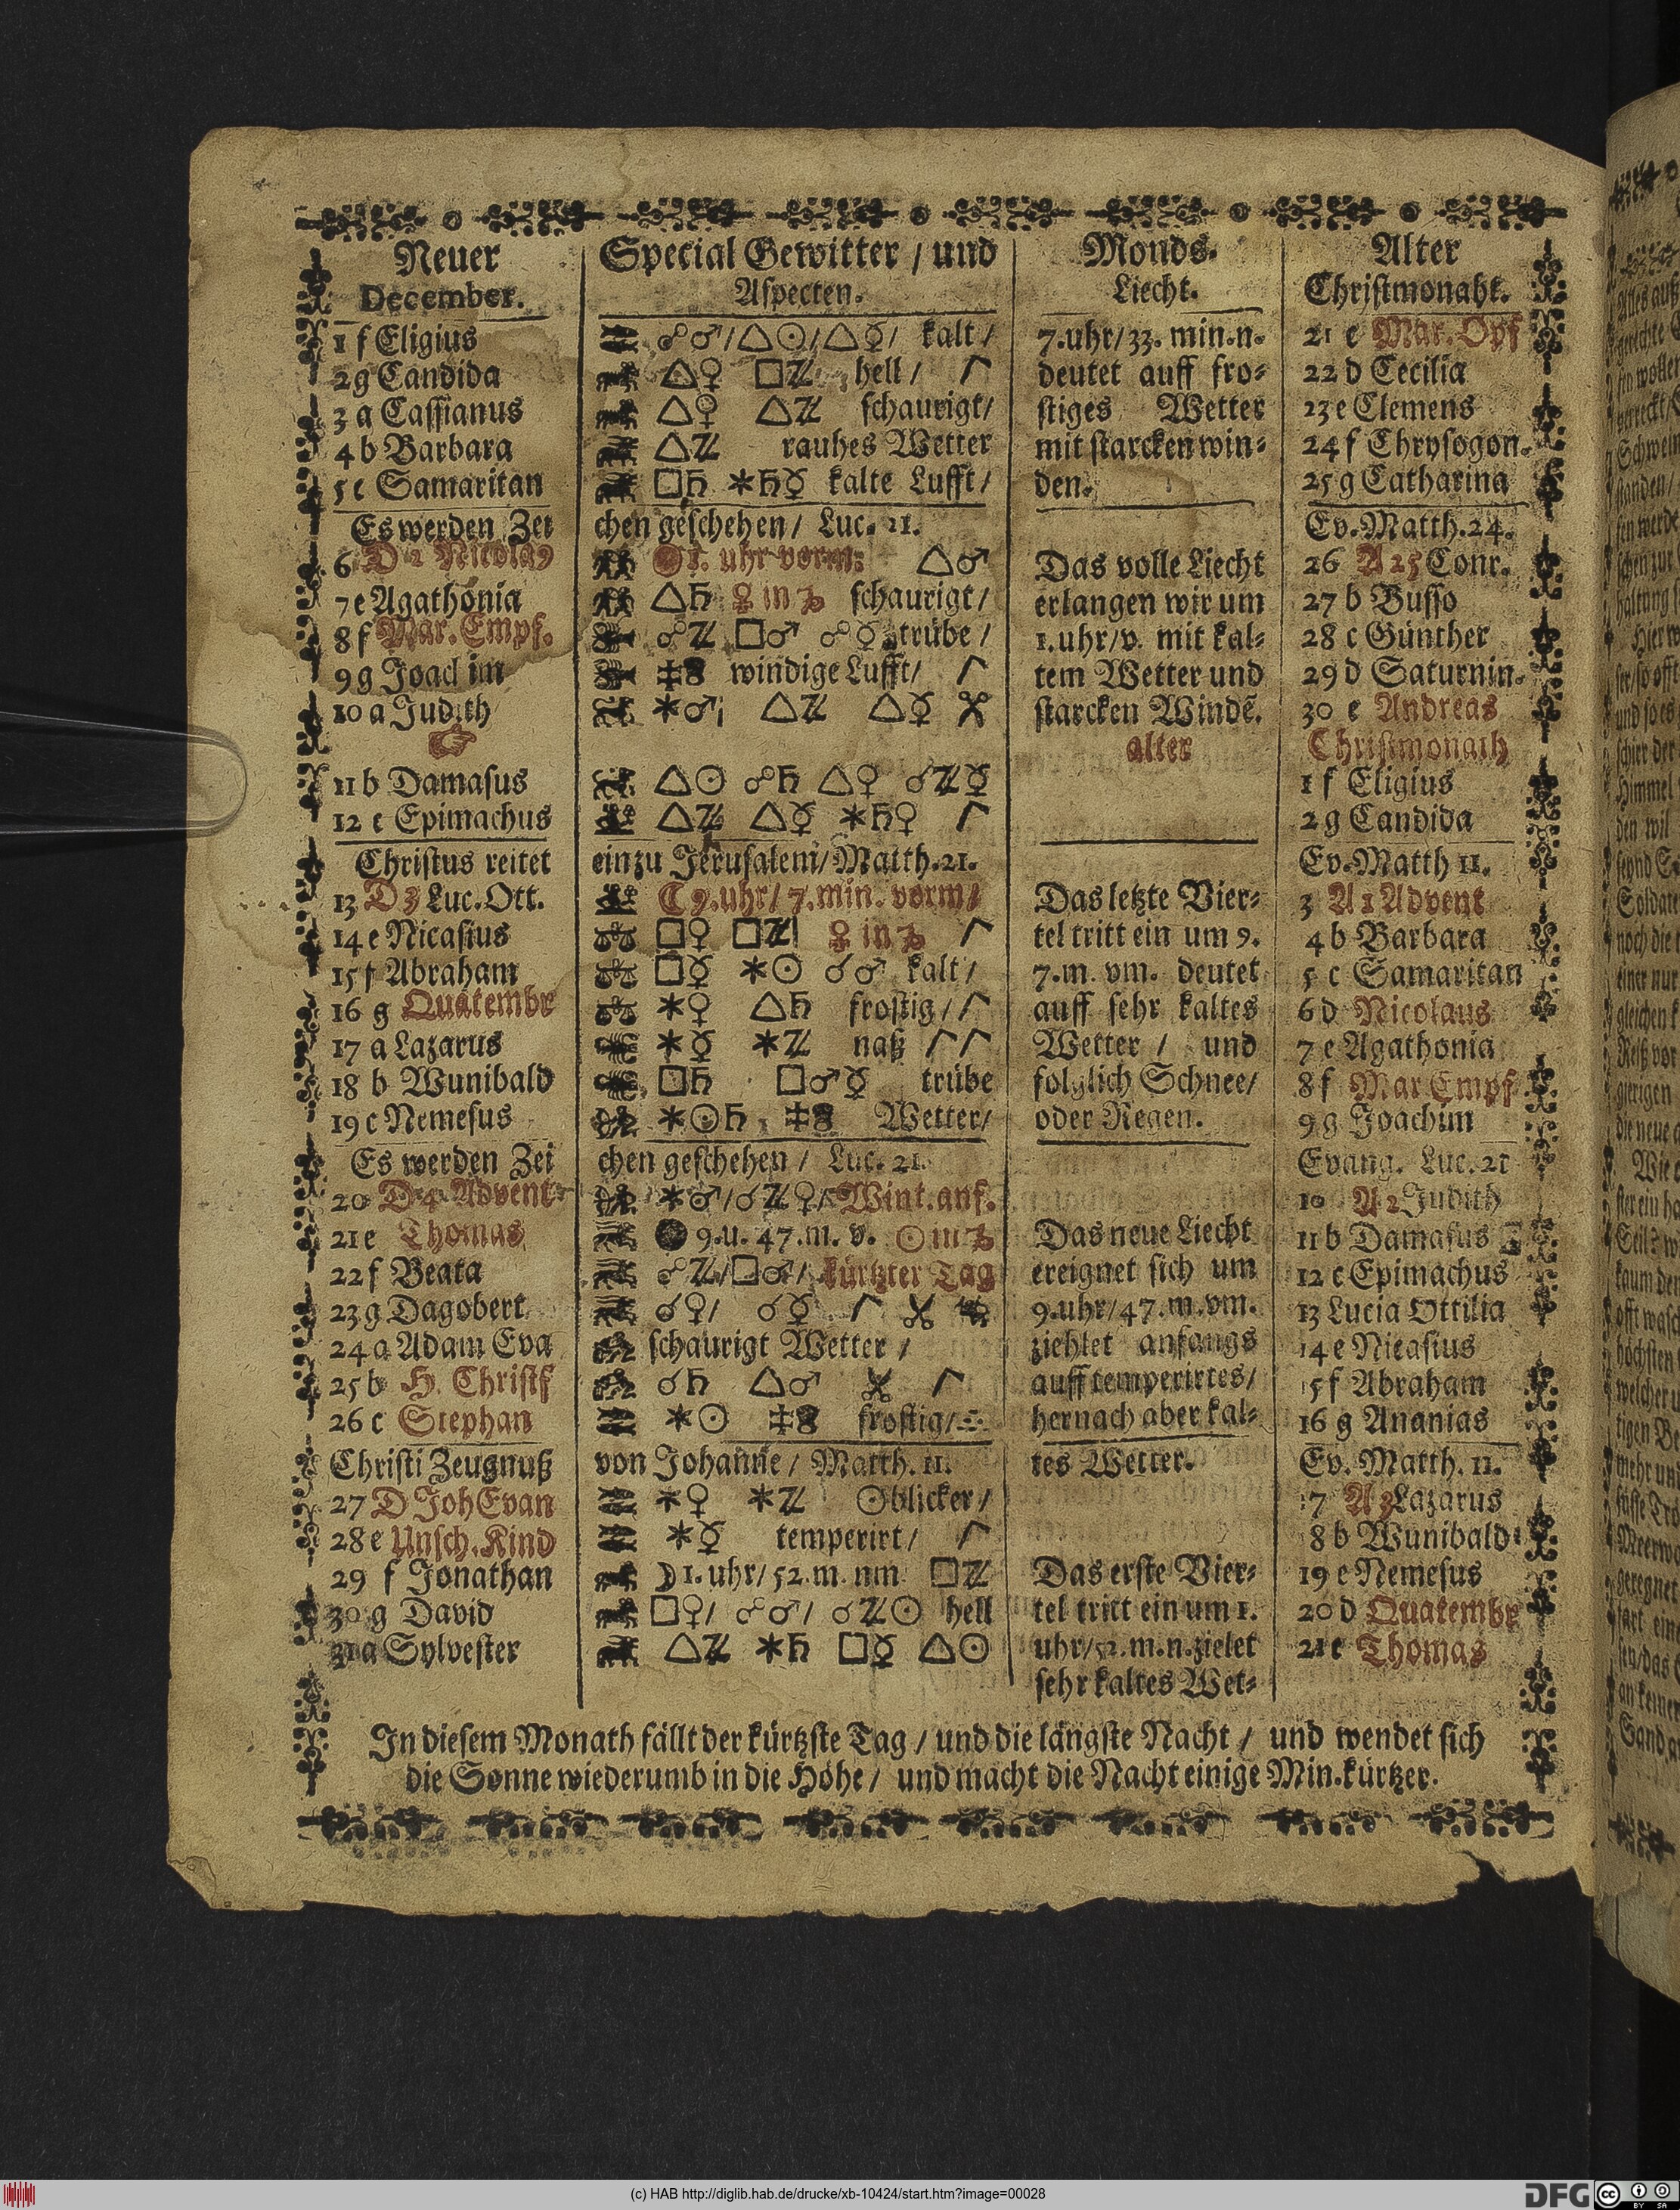 Neuer Special Gewitter / und Monds. Alter
December. Aspecten. Liecht. Christmonaht.
1 f Eligius ☍♂/△☉/△☿/ kalt / 7.uhr/33. min.n. 21 c Mar. Opf
2 g Candida △♀ □♃ hell / deutet auff fro⸗ 22 d Cecilia
3 a Cassianus △♀ △♃ schaurigt/ stiges Wetter 23 e Clemens
4 b Barbara △♃ rauhes Wetter mit starcken win⸗ 24 f Chrysogon.
5 c Samaritan □♄ ✶♄☿ kalte Lufft / den. 25 g Catharina
Es werden Zei chen geschehen / Luc. 21. Ev. Matth. 24.
6 D 2 Nicolaꝰ uhr vorm: △♂ Das volle Liecht 26 A 25 Conr.
7 e Agathonia △♄ ☿ in ♑ schaurigt / erlangen wir um 27 b Busso
8 f Mar. Empf. ☍♃ □♂ ☍☿ trübe / 1. uhr/v. mit kal⸗ 28 c Günther
9 g Joachim windige Lufft/ tem Wetter und 29 d Saturnin.
10 a Judith ✶♂ △♃ △☿ starcken Windẽ. 30 e Andreas
☞ alter Christmonath
11 b Damasus △☉ ☍♄ △♀ ☌♃☿ 1 f Eligius
12 c Epimachus △♃ △☿ ✶♄♀ 2 g Candida
Christus reitet ein zu Jerusalem/ Matth. 21. Ev. Matth 11.
13 D 3 Luc. Ott. ☾ 9. uhr/ 7. min. vorm/ Das letzte Vier⸗ 3 A 1 Advent
14 e Nicasius □♀ □♃ ☿ in ♑ tel tritt ein um 9. 4 b Barbara
15 f Abraham □☿ ✶☉ ☌♂ kalt / 7. m. vm. deutet 5 c Samaritan
16 g Quatembr ✶♀ △♄ frostig / auff sehr kaltes 6 d Nicolaus
17 a Lazarus ✶☿ ✶♃ naß Wetter / und 7 e Agathonia
18 b Wunibald □♄ □♂☿ trübe folglich Schnee/ 8 f Mar Empf
19 c Nemesus ✶☉♄ Wetter/ oder Regen. 9 g Joachim
Es werden Zei chen geschehen / Luc. 21. Evang. Luc. 21
20 D 4 Advent ✶♂/☌♃♀/ Wint. anf. 10 A 2 Judith
21 e Thomas 9. u. 47. m. v. ☉ in ♑ Das neue Liecht 11 b Damasus
22 f Beata ☍♃/□♂/ kürtzter Tag ereignet sich um 12 c Epimachus
23 g Dagobert ☌♀/ ☌☿ 9. uhr/47. m. vm. 13 Lucia Ottilia
24 a Adam Eva schaurigt Wetter / ziehlet anfangs 14 e Nicasius
25 b H. Christf ☌♄ △♂ auff temperirtes/ 15 f Abraham
26 c Stephan ✶☉ frostig/ hernach aber kal⸗ 16 g Ananias
Christi Zeugnuß von Johanne / Matth. 11. tes Wetter. Ev. Matth. 11.
27 D Joh Evan ✶♀ ✶♃ ☉blicker / 17 A 3 Lazarus
28 e Unsch. Kind ✶☿ temperirt / 8 b Wunibald
29 f Jonathan ☽ 1. uhr/ 52. m. nm □♃ Das erste Vier⸗ 19 c Nemesus
30 g David □♀/ ☍♂/ ☌♃☉ hell tel tritt ein um 1. 20 d Quatembr
31 a Sylvester △♃ ✶♄ □☿ △☉ uhr/52. m. n. zielet 21 e Thomas
sehr kaltes Wet⸗
In diesem Monath fällt der kürtzste Tag / und die längste Nacht / und wendet sich
die Sonne wiederumb in die Höhe / und macht die Nacht einige Min. kürtzer.
(c) HAB http://diglib.hab.de/drucke/xb-10424/start.htm?image=00028
DFG cc BY SA